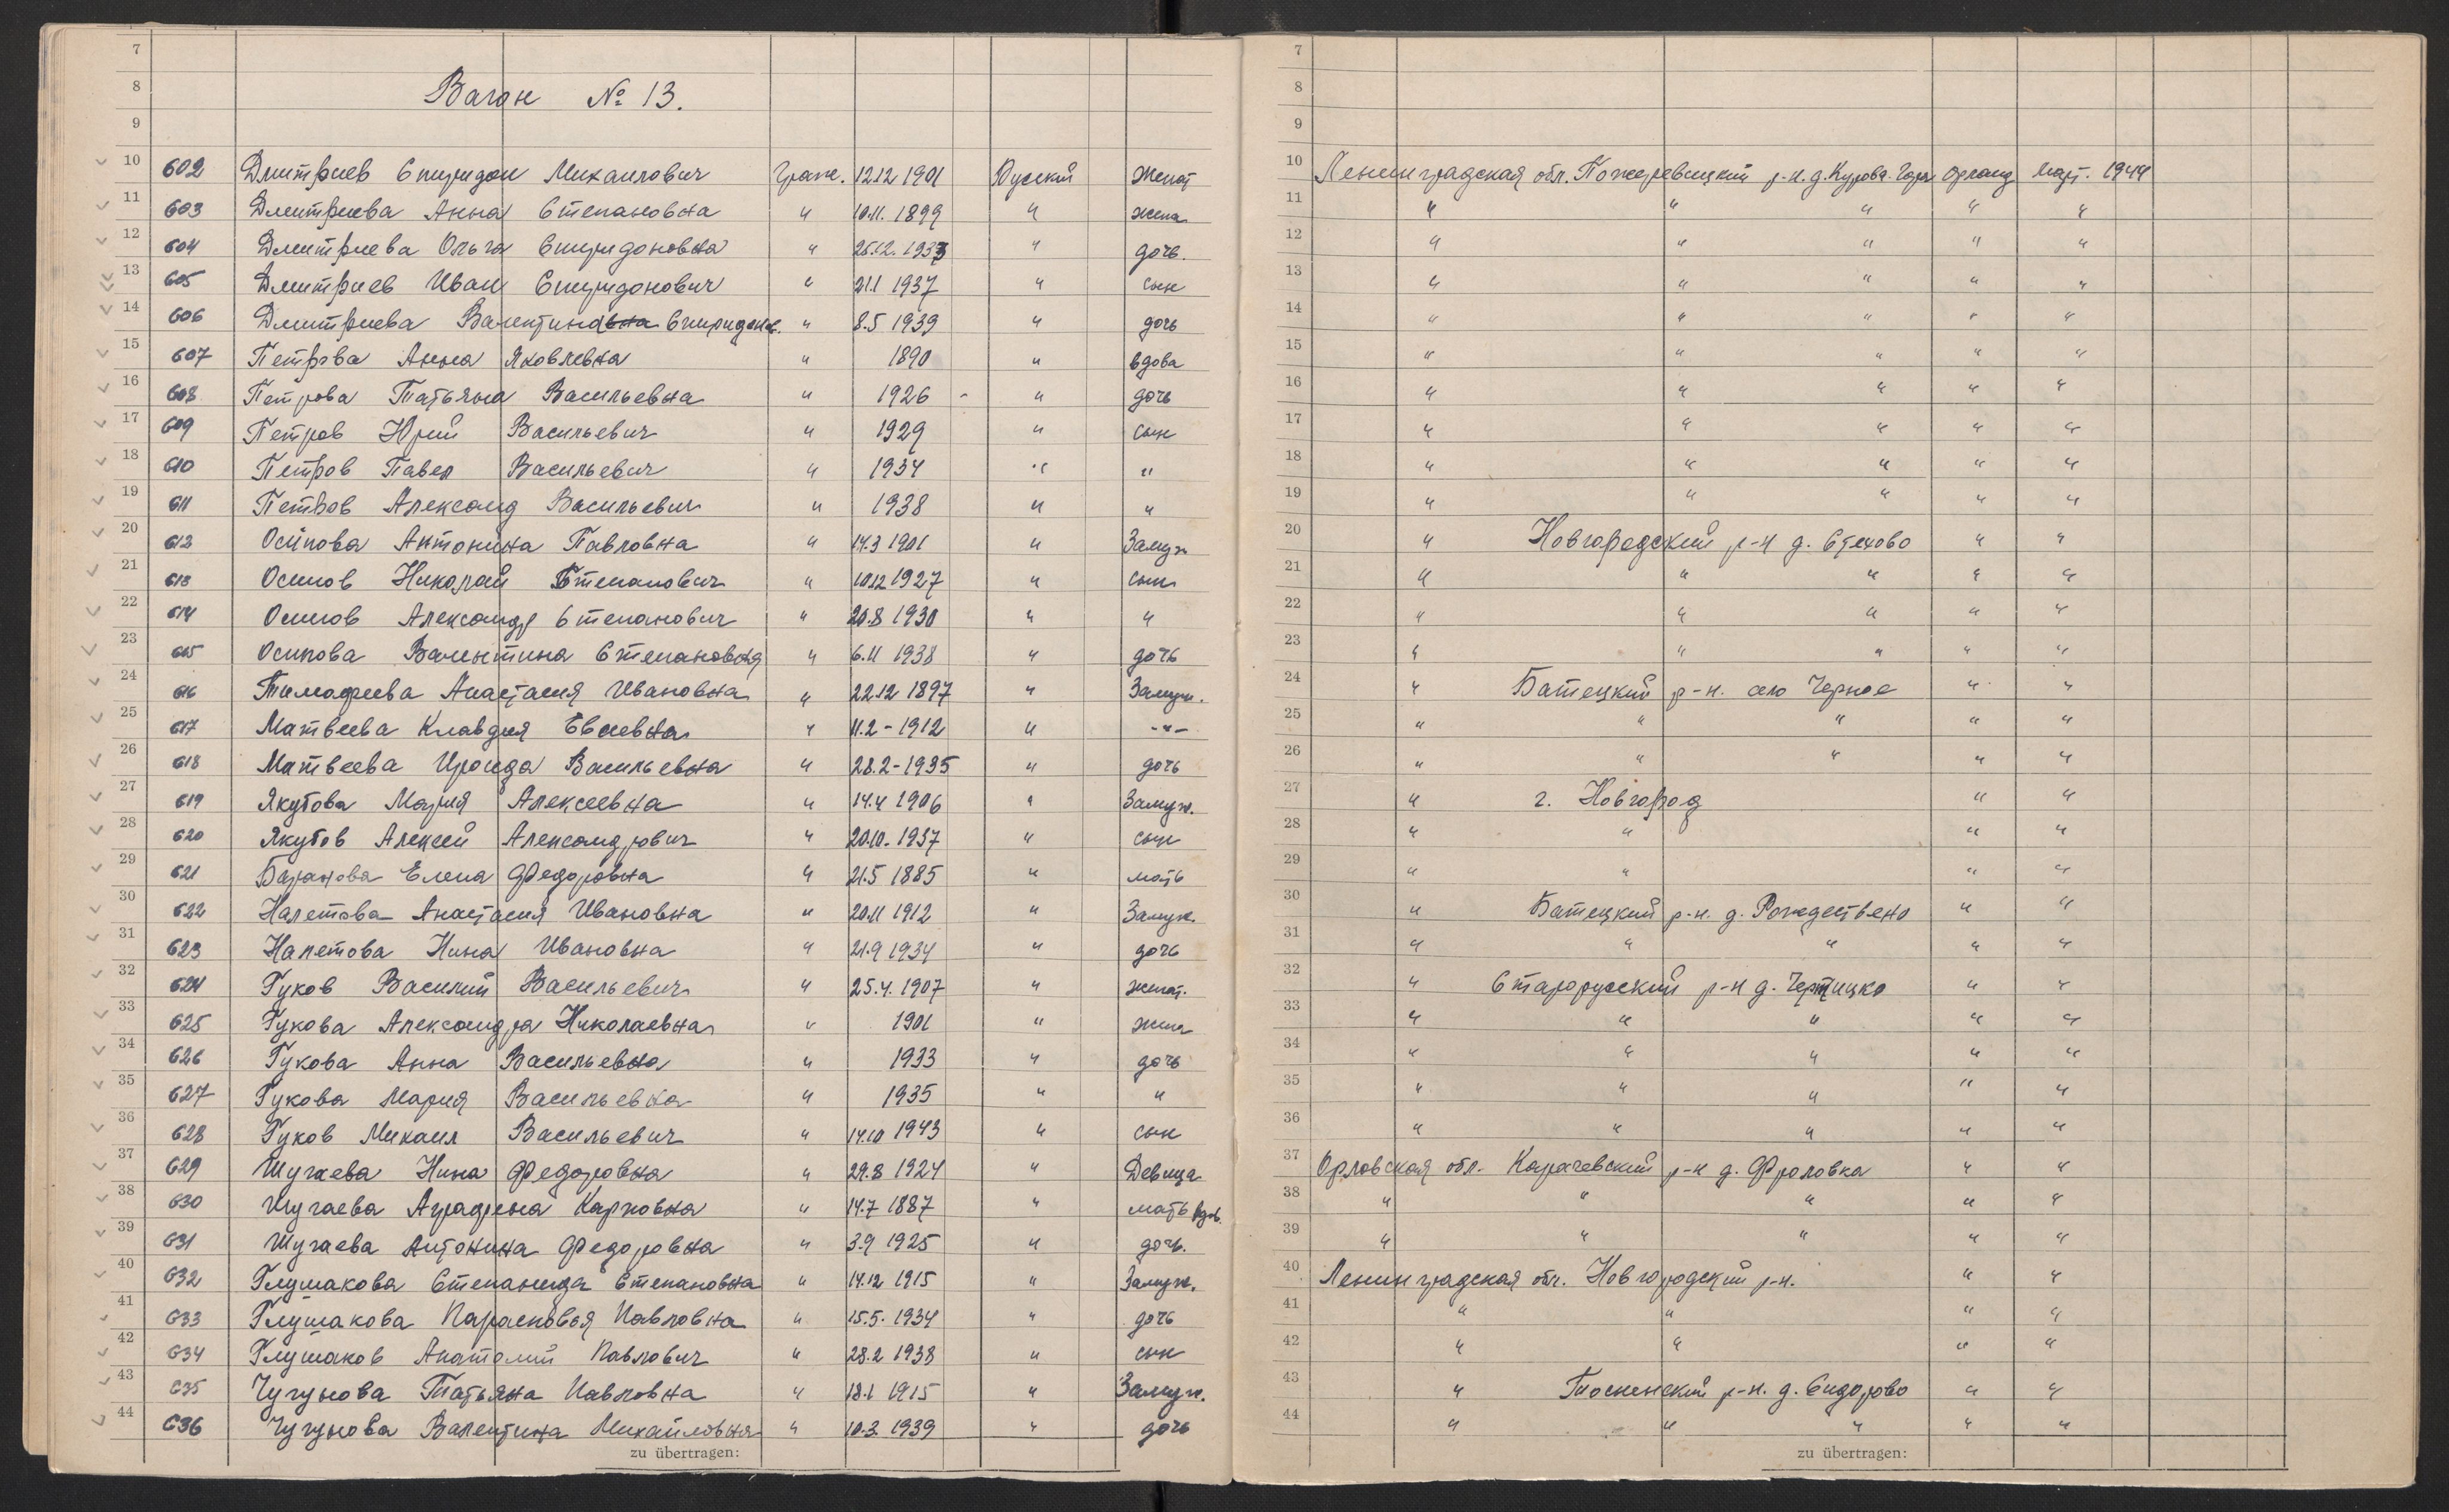 7 7
8 Вагон № 13. 8
9 9
10 602 Дмитриев Спиридон Михаилович Граж. 12.12 1901 Русский Женат 10 Ленинградская обл. Пожеревицкий р-н. д. Курова-Гора март. 1944
11 603 Дмитриева Анна Степановна " 10.11. 1899 " жена 11 " " " " "
12 604 Дмитриева Ольга Спиридоновна " 25.12. 1933 " дочь. 12 " " " " "
13 605 Дмитриев Иван Спиридонович " 21.1 1937 " сын 13 " " " " "
14 606 Дмитриева Валентина Спиридонов. " 8.5 1939 " дочь 14 " " " " "
15 607 Петрова Анна Яковлевна " 1890 " вдова 15 " " " " "
16 608 Петрова Татьяна Васильевна " 1926 - " дочь 16 " " " " "
17 609 Петров Юрий Васильевич " 1929 " сын 17 " " " " "
18 610 Петров Павел Васильевич " 1934 " " 18 " " " " "
19 611 Петров Александ Васильевич " 1938 " " 19 " " " " "
20 612 Осипова Антонина Павловна " 14.3 1901 " Замуж 20 " Новгородский р-н д. Стехово " "
21 613 Осипов Николай Степанович " 10.12 1927 " сын 21 " " " " "
22 614 Осипов Александр Степанович " 20.8 1930 " " 22 " " " " "
23 615 Осипова Валентина Степановна " 6.11 1938 " дочь 23 " " " " "
24 616 Тимофеева Анастасия Ивановна " 22.12 1897 " Замуж. 24 " Батецкий р-н. село Черное " "
25 617 Матвеева Клавдия Евсиевна " 11.2-1912 " -"- 25 " " " " "
26 618 Матвеева Ироида Васильевна " 28.2-1935 " дочь 26 " " " " "
27 619 Якутова Мария Алексеевна " 14.4 1906 " Замуж. 27 " г. Новгород " "
28 620 Якутов Алексей Александрович " 20.10. 1937 " сын 28 " " " "
29 621 Баранова Елена Федоровна " 21.5 1885 " мать 29 " " " "
30 622 Налетова Анастасия Ивановна " 20.11 1912 " Замуж. 30 " Батецкий р-н. д. Рождествено " "
31 623 Налетова Нина Ивановна " 21.9 1934 " дочь 31 " " " " "
32 624 Гуков Василий Васильевич " 25.4. 1907 " женат. 32 " Старорусский р-н д. Чертицко " "
33 625 Гукова Александра Николаевна " 1901 " жена 33 " " " " "
34 626 Гукова Анна Васильевна " 1933 " дочь 34 " " " " "
35 627 Гукова Мария Васильевна " 1935 " " 35 " " " " "
36 628 Гуков Михаил Васильевич " 14.10 1943 " сын 36 " " " " "
37 629 Шугаева Нина Федоровна " 29.8 1924 " Девица 37 Орловская обл. Карачевский р-н д. Фроловка " "
38 630 Шугаева Аграфена Карповна " 14.7 1887 " мать вдов. 38 " " " " "
39 631 Шугаева Антонина Федоровна " 3.9 1925 " дочь. 39 " " " " "
40 632 Глушакова Степанида Степановна " 14.12 1915 " Замуж. 40 Ленинградская обл. Новгородский р-н. " "
41 633 Глушакова Парасковья Павловна " 15.5. 1934 " дочь 41 " " " "
42 634 Глушаков Анатолий Павлович " 28.2 1938 " сын 42 " " " "
43 635 Чугунова Татьяна Павловна " 18.1 1915 " Замуж. 43 " Тосненский р-н. д. Сидорово " "
44 636 Чугунова Валентина Михайловна " 10.3. 1939 " дочь 44 " " " " "
zu übertragen: zu übertragen: